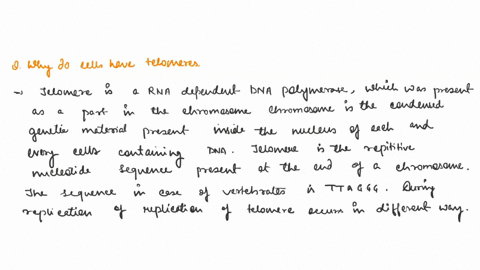 Q. Why do cells have telomeres
→ Telomere is a RNA dependent DNA polymerase, which was present
as a part in the chromosome chromosome is the condensed
genetic material present inside the nucleus of each and
every cells containing DNA. Telomere is the repititive
nucleotide sequence present at the end of a chromosome.
The sequence in case of vertebrates is TTAGGG. During
replication of replication of telomere occurs in different way.